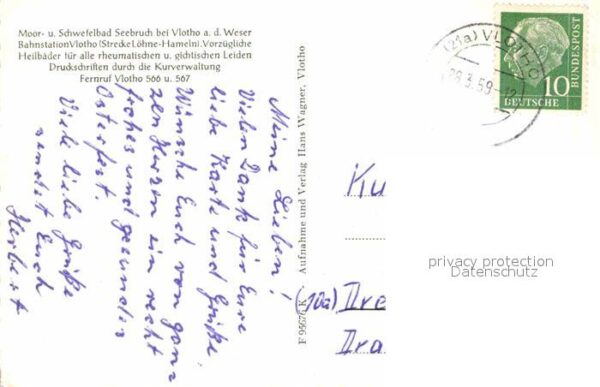 Moor- u. Schwefelbad Seebruch bei Vlotho a. d. Weser
Bahnstation Vlotho (Strecke Löhne-Hameln). Vorzügliche
Heilbäder für alle rheumatischen u. gichtischen Leiden
Druckschriften durch die Kurverwaltung
Fernruf Vlotho 566 u. 567
Meine Lieben!
Vielen Dank für Eure
liebe Karte und Grüße.
Wünsche Euch von gan-
zen Herzen ein recht
frohes und gesundes
Osterfest.
Viele liebe Grüße
sendet Euch
Herbert
F 95676 K Aufnahme und Verlag Hans Wagner, Vlotho
(21a) VLOTHO
28.3.59-12
10
DEUTSCHE
BUNDESPOST
Ku
(10a) Dre
Dra
privacy protection
Datenschutz